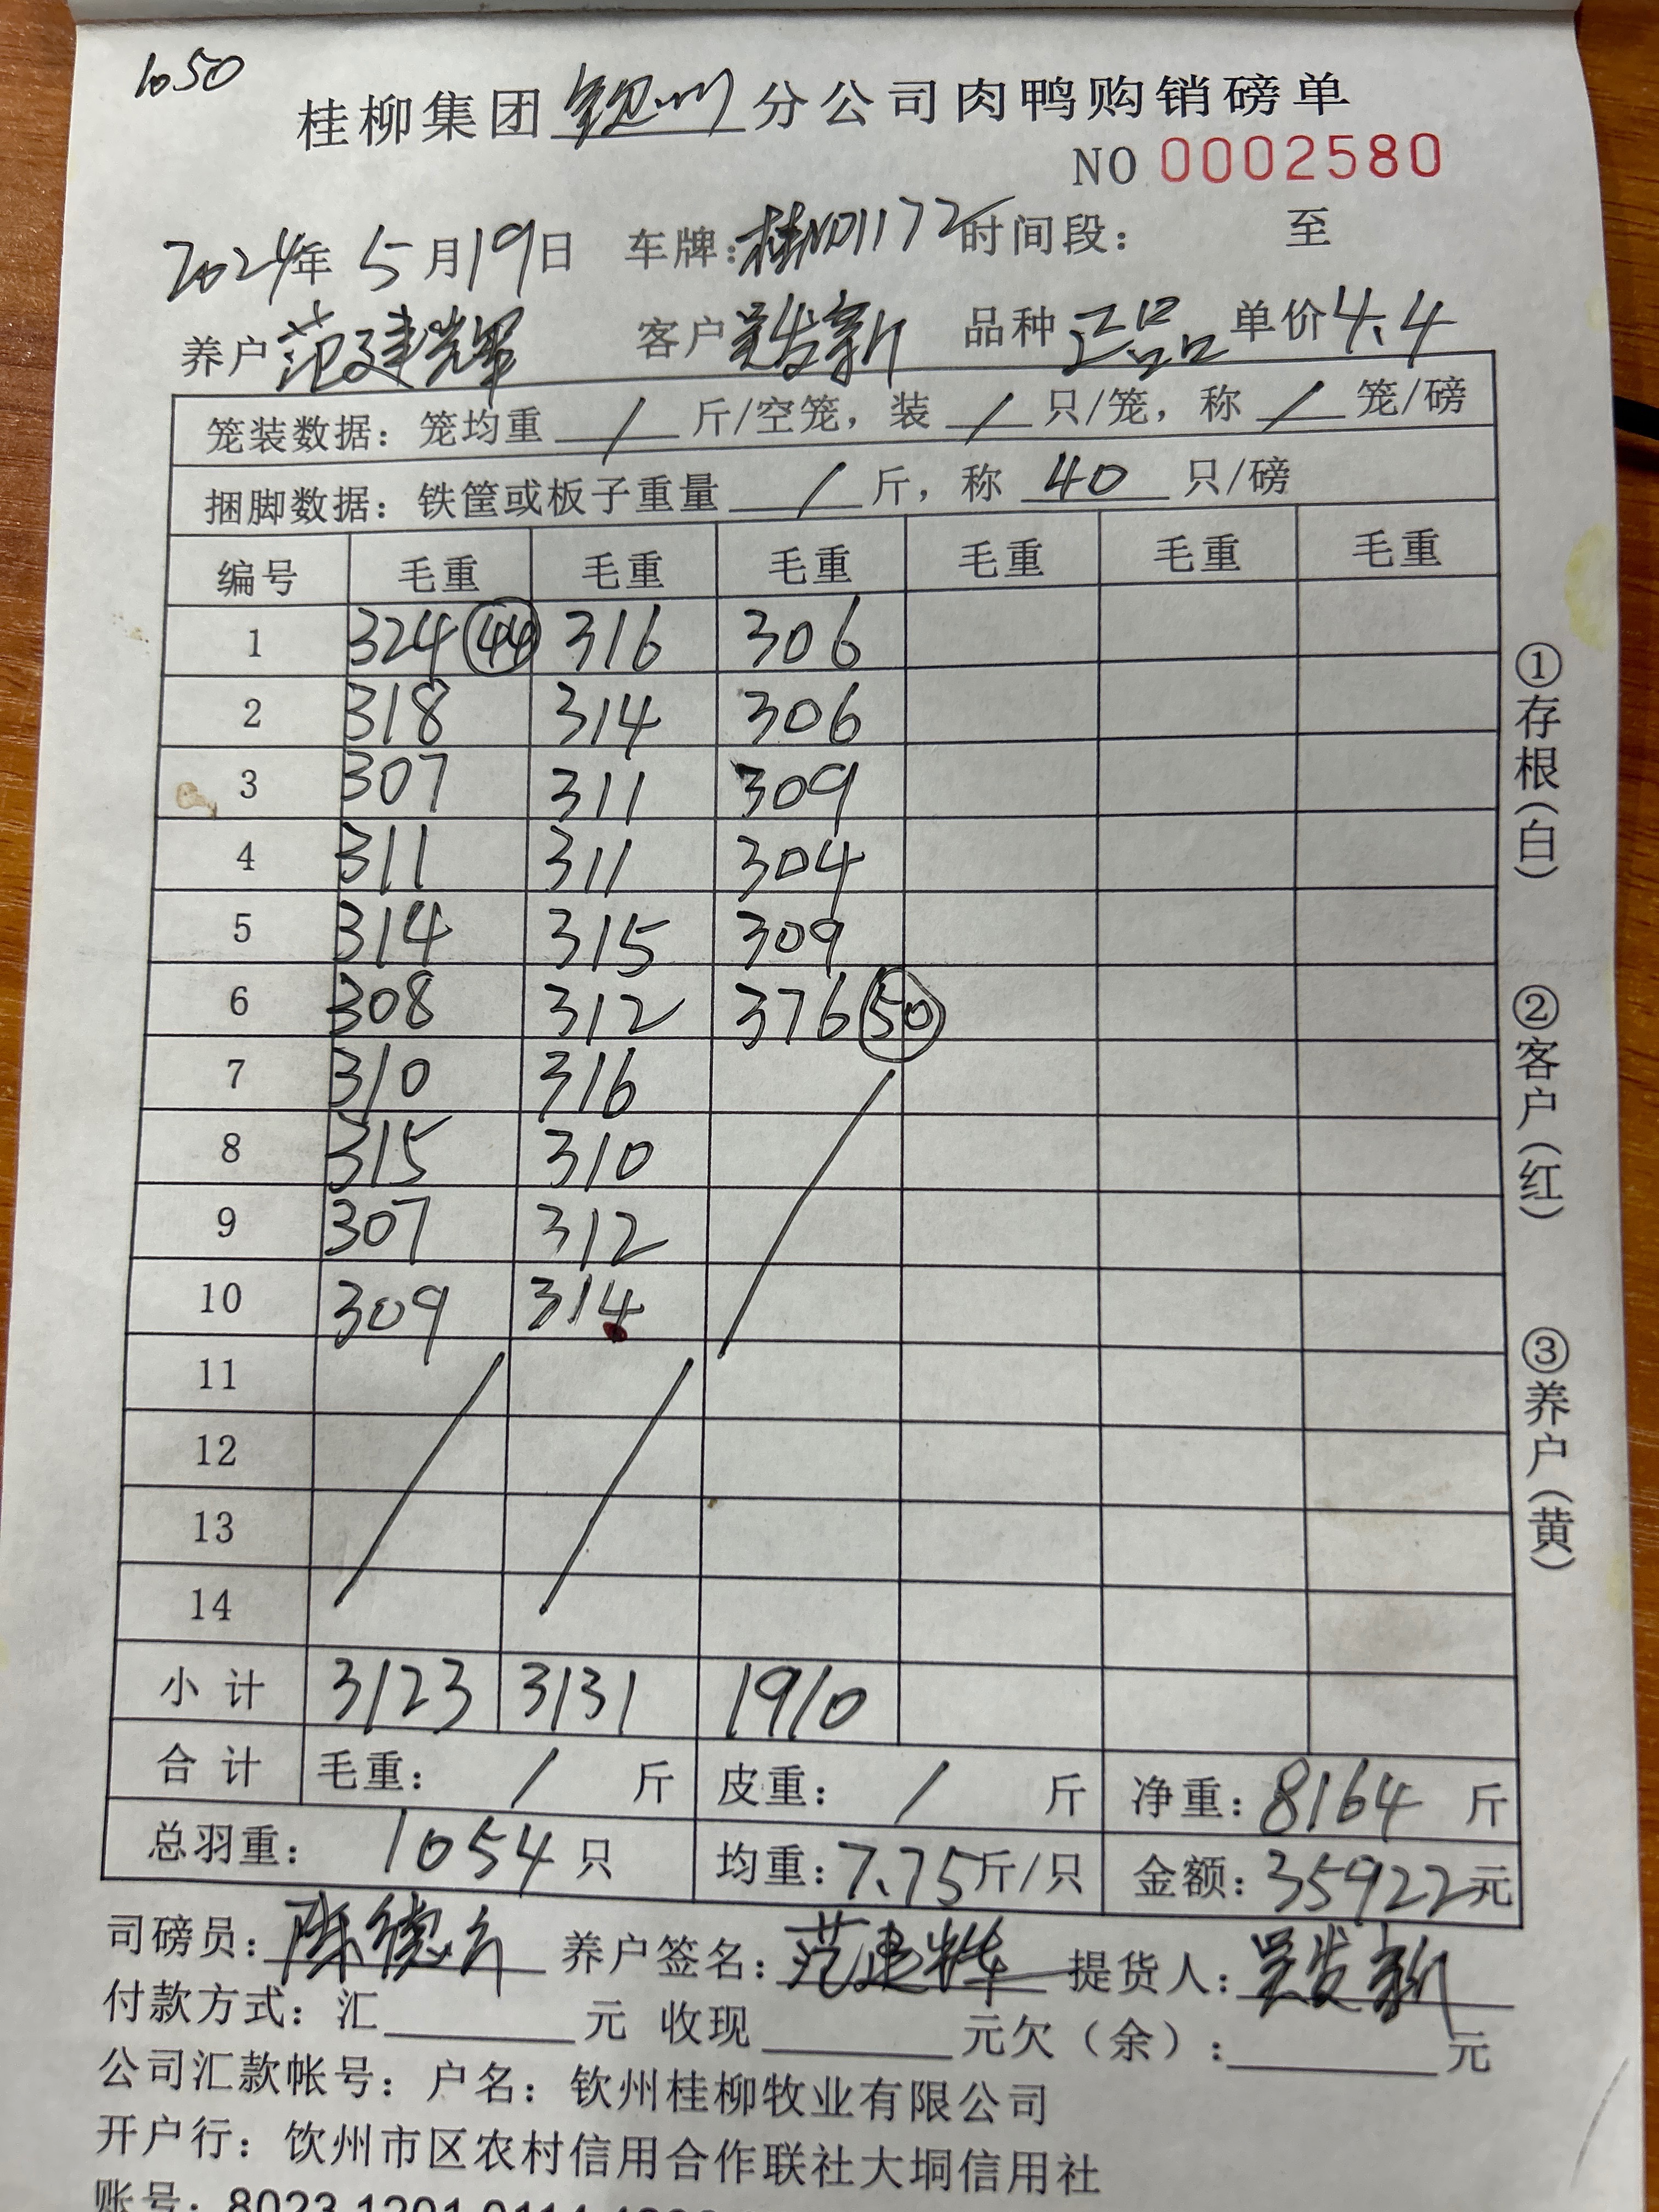 1050
桂柳集团钦州分公司肉鸭购销磅单
NO 0002580
2024年 5月19日 车牌:桂N01172 时间段: 至
养户 范建辉 客户 吴发新 品种 正品 单价 4.4
笼装数据: 笼均重 / 斤/空笼, 装 / 只/笼, 称 / 笼/磅
捆脚数据: 铁筐或板子重量 / 斤, 称 40 只/磅
编号 毛重 毛重 毛重 毛重 毛重 毛重
1 324 44 316 306
2 318 314 306
3 307 311 309
4 311 311 304
5 314 315 309
6 308 312 376 50
7 310 316
8 315 310
9 307 312
10 309 314
11
12
13
14
小计 3123 3131 1910
合计 毛重: / 斤 皮重: / 斤 净重: 8164 斤
总羽重: 1054 只 均重: 7.75 斤/只 金额: 35922 元
司磅员: 陈德 养户签名: 范建 提货人: 吴发新
付款方式: 汇 元 收现 元欠(余): 元
公司汇款帐号: 户名: 钦州桂柳牧业有限公司
开户行: 饮州市区农村信用合作联社大垌信用社
账号: 8023 1201 0114
①存根(白)
②客户(红)
③养户(黄)